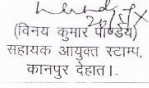 (विनय कुमार पाण्डेय)
सहायक आयुक्त स्टाम्प,
कानपुर देहात।.